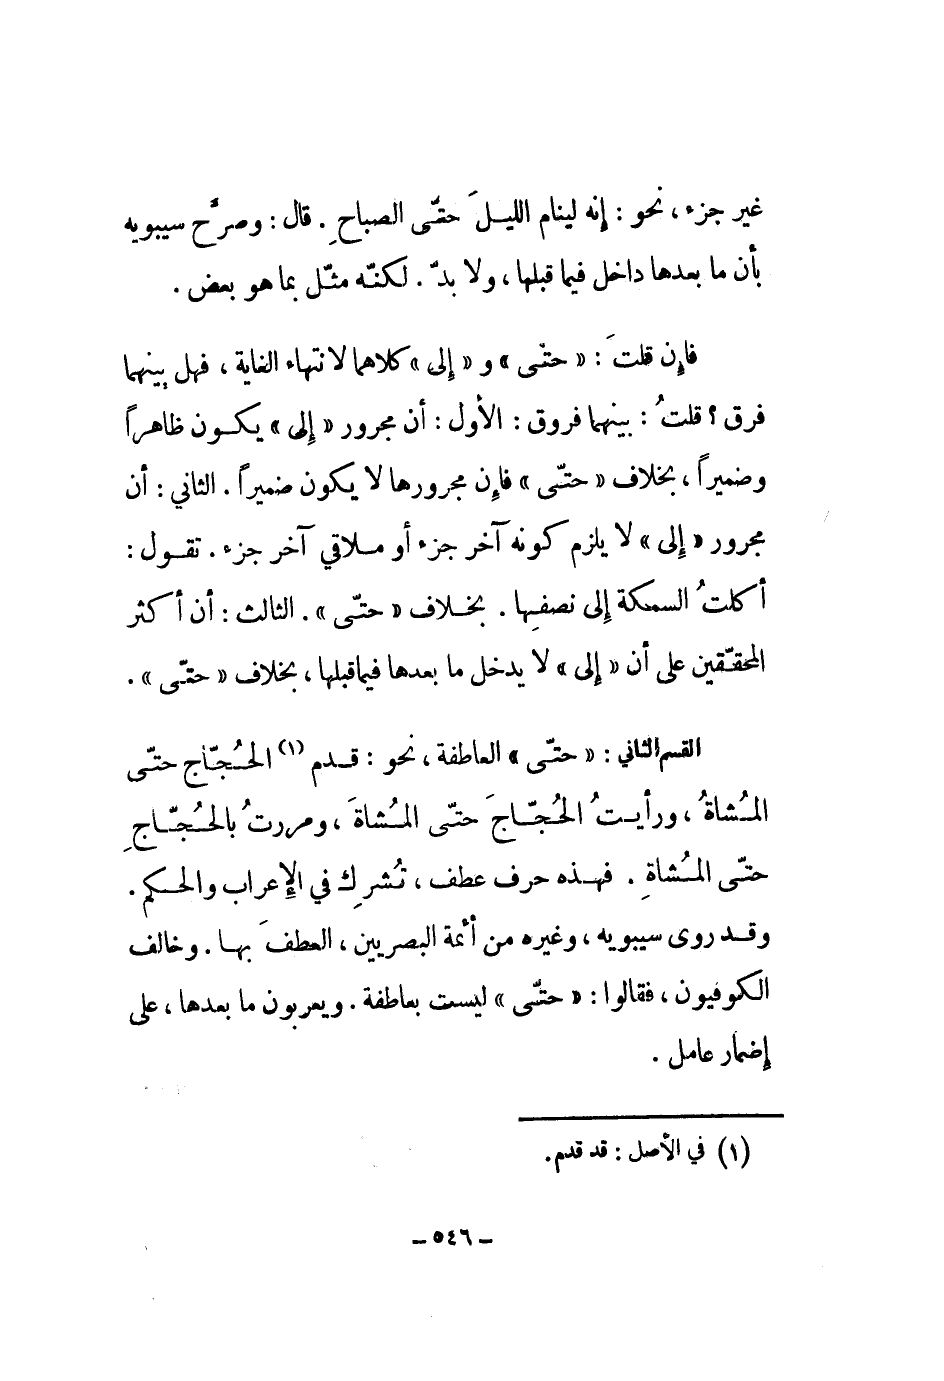 غير جزء ، نحو : إنه لينام الليلَ حتّى الصباحِ . قال : وصرّح سيبويه
بأن ما بعدها داخل فيما قبلها ، ولا بدّ . لكنّه مثّل بما هو بعض .
فإن قلتَ : « حتّى » و « إلى » كلاهما لانتهاء الغاية ، فهل بينهما
فرق ؟ قلتُ : بينهما فروق : الأول : أن مجرور « إلى » يكون ظاهراً
وضميراً ، بخلاف « حتّى » فإن مجرورها لا يكون ضميراً . الثاني : أن
مجرور « إلى » لا يلزم كونه آخر جزء أو ملاقي آخر جزء . تقول :
أكلتُ السمكة إلى نصفِها . بخلاف « حتّى » . الثالث : أن أكثر
المحققّين على أن « إلى » لا يدخل ما بعدها فيما قبلها ، بخلاف « حتّى » .
القسم الثاني : « حتّى » العاطفة ، نحو : قدم (١) الحُجّاج حتّى
المُشاةُ ، ورأيتُ الحُجّاجَ حتّى المُشاةَ ، ومررتُ بالحُجّاجِ
حتّى المُشاةِ . فهذه حرف عطف ، تُشرِك في الإعراب والحكم .
وقد روى سيبويه ، وغيره من أئمة البصريين ، العطفَ بها . وخالف
الكوفيون ، فقالوا : « حتّى » ليست بعاطفة . ويعربون ما بعدها ، على
إضمار عامل .
(١) في الأصل : قد قدم .
– ٥٤٦ –